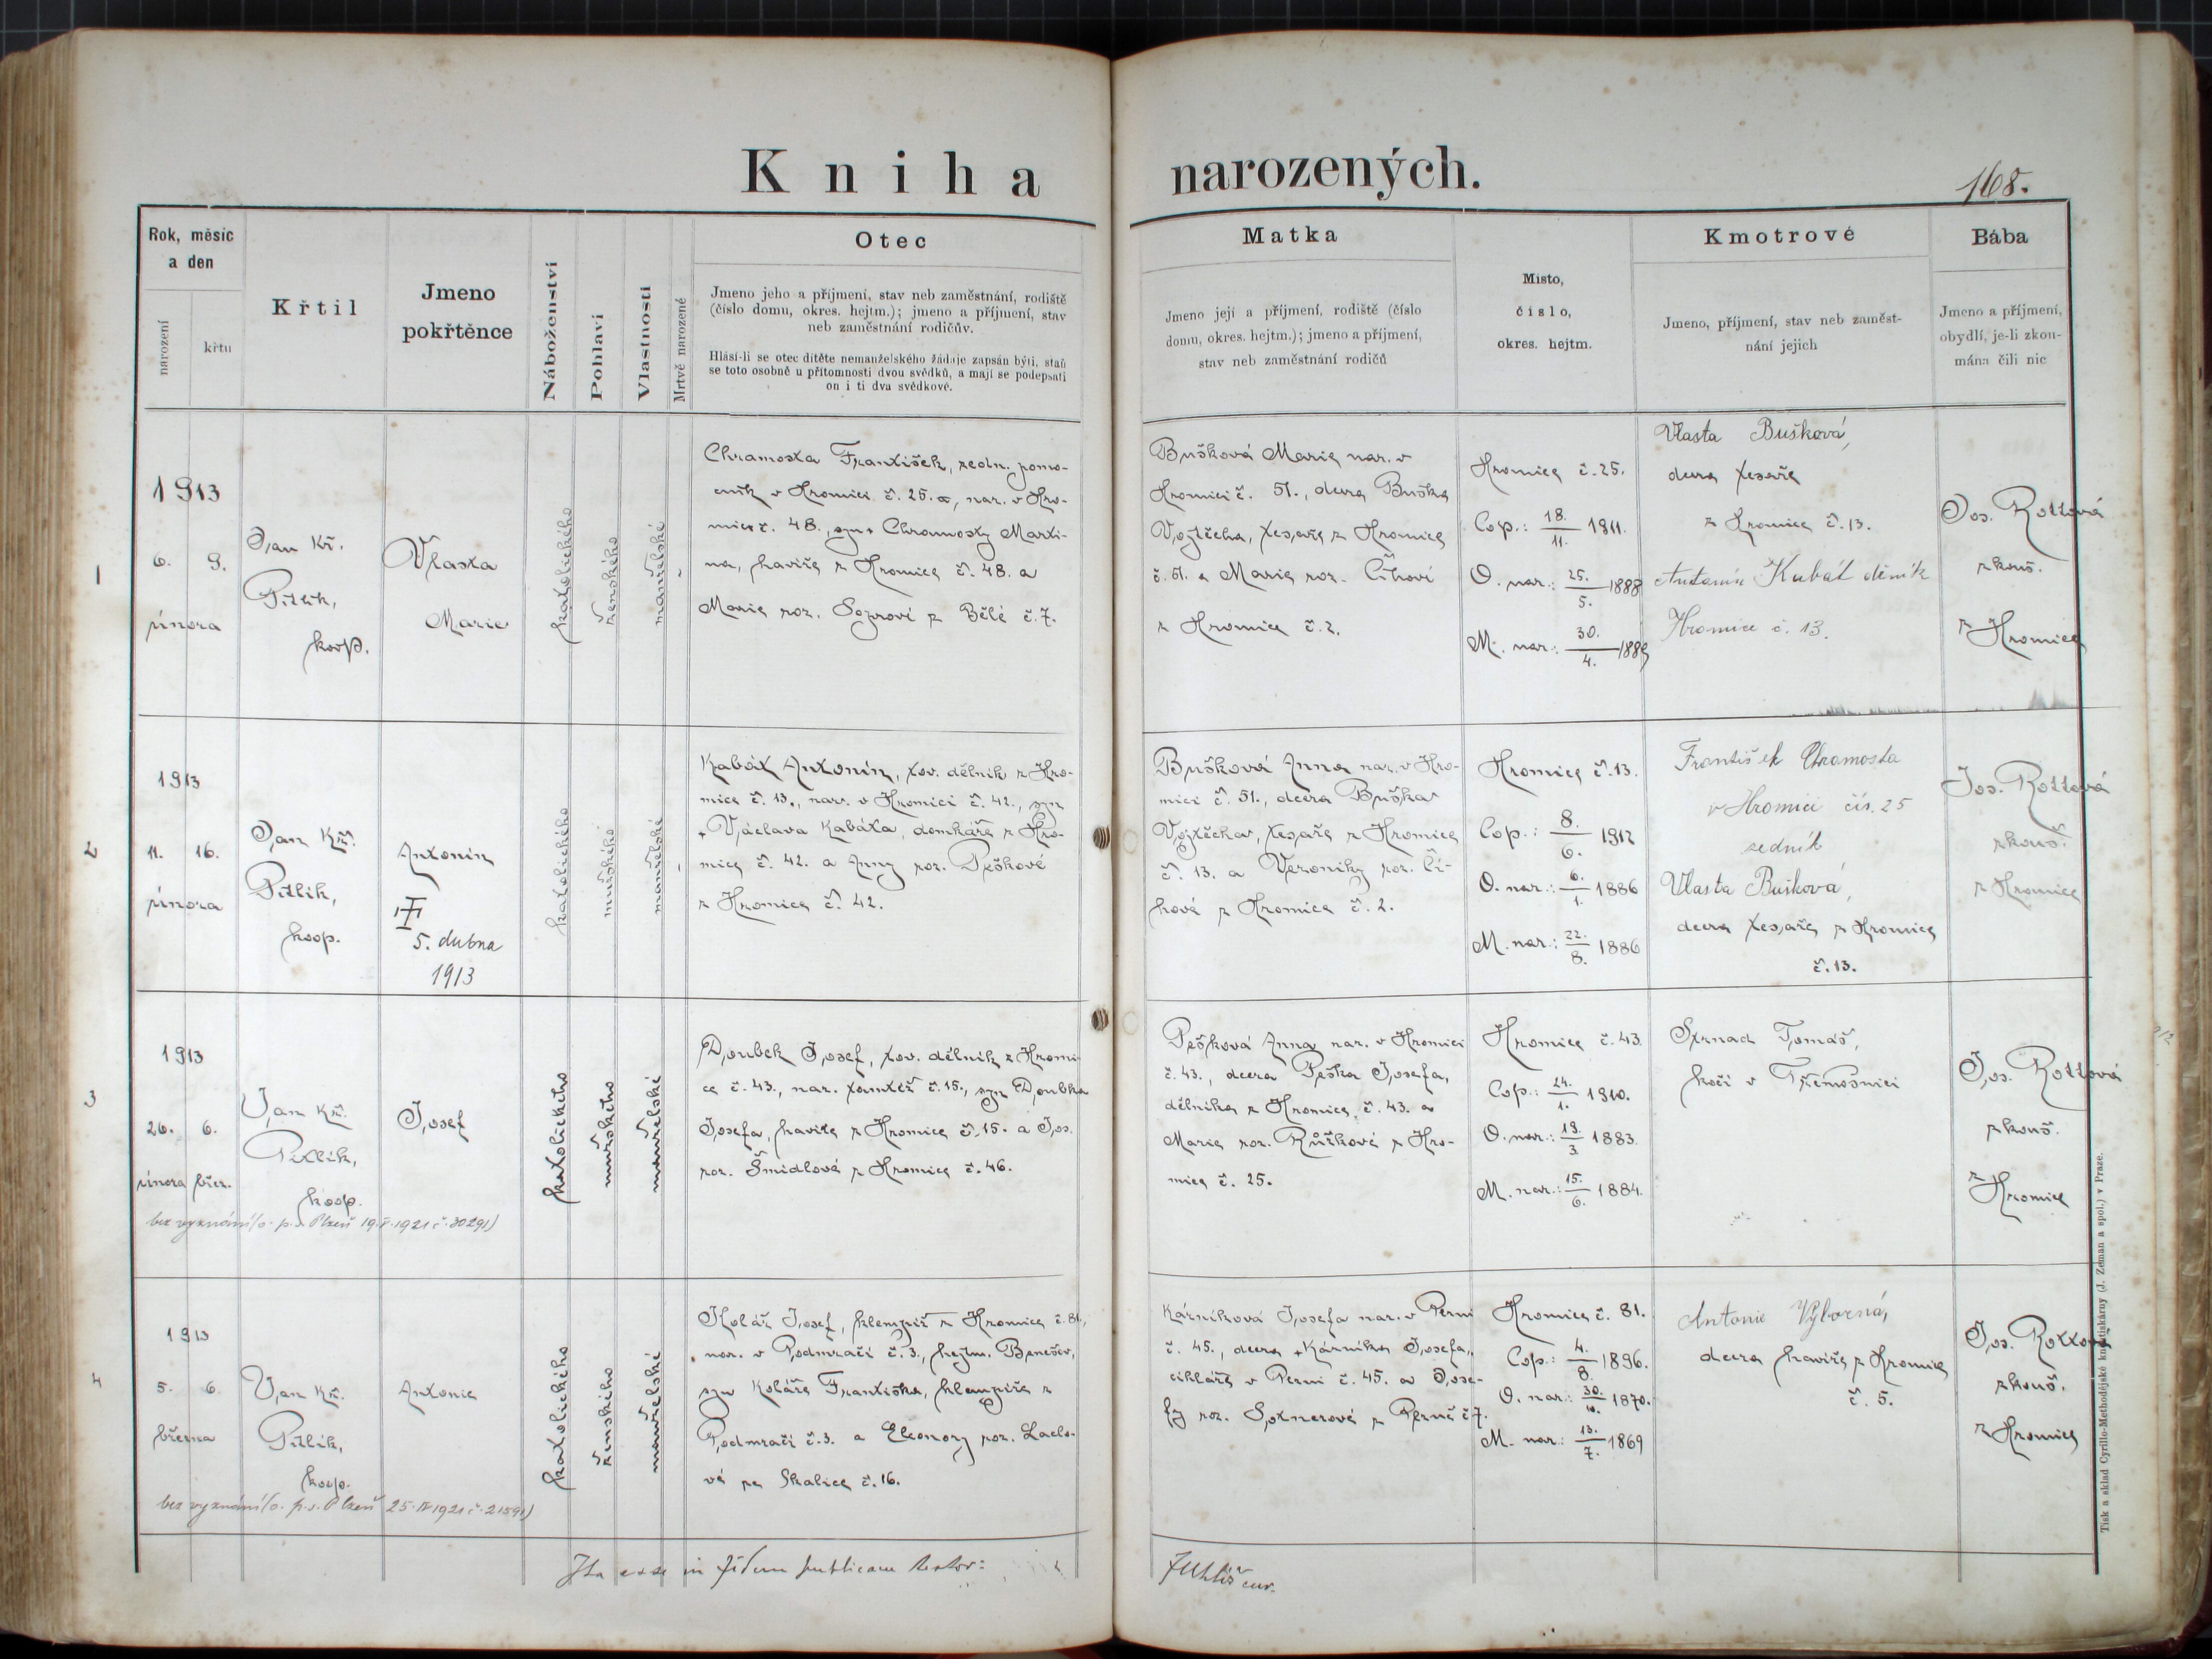 Kniha narozených.
168.
Rok, měsíc
a den
narození
křtu
Křtil
Jmeno
pokřtěnce
Náboženství
Pohlaví
Vlastnosti
Mrtvě narozené
Otec
Jmeno jeho a příjmení, stav neb zaměstnání, rodiště
(číslo domu, okres. hejtm.); jmeno a příjmení, stav
neb zaměstnání rodičův.
Hlásí-li se otec dítěte nemanželského žádaje zapsán býti, staň
se toto osobně u přítomnosti dvou svědků, a mají se podepsati
on i ti dva svědkové.
Matka
Jmeno její a příjmení, rodiště (číslo
domu, okres. hejtm.); jmeno a příjmení,
stav neb zaměstnání rodičů
Místo,
číslo,
okres. hejtm.
Kmotrové
Jmeno, příjmení, stav neb zaměst-
nání jejich
Bába
Jmeno a příjmení,
obydlí, je-li zkou-
mána čili nic
1
1913
6. 9.
února
Jan Kř.
Pitlík,
koop.
Vlasta
Marie
katolického
ženského
manželské
Chramosta František, zedn. pomo-
cník v Hromici č. 25. a, nar. v Hro-
mici č. 48., syn + Chromosty Marti-
na, havíře z Hromice č. 48. a
Marie roz. z Bělé č. 7.
Bušková Marie nar. v
Hromici č. 51., dcera Buška
Vojtěcha, tesaře z Hromice
č. 51. a Marie roz. Číhové
z Hromice č. 2.
Hromice č. 25.
Cop.: 18./11. 1911.
O. nar.: 25./5. 1888
M. nar.: 30./4. 1889
Vlasta Bušková,
dcera tesaře
z Hromice č. 13.
Antonín Kubát dělník
Hromice č. 13.
Jos. Rottová
zkouš.
z Hromice
2
1913
11. 16.
února
Jan Kř.
Pitlík,
koop.
Antonín
5. dubna
1913
katolického
mužského
manželské
Kabát Antonín, tov. dělník z Hro-
mice č. 13., nar. v Hromici č. 42., syn
+ Václava Kabáta, domkáře z Hro-
mice č. 42. a Anny roz. Peškové
z Hromice č. 42.
Bušková Anna nar. v Hro-
mici č. 51., dcera Buška
Vojtěcha, tesaře z Hromice
č. 13. a Veroniky roz. Čí-
hové z Hromice č. 2.
Hromice č. 13.
Cop.: 8./6. 1912
O. nar.: 6./1. 1886
M. nar.: 22./8. 1886
František Chramosta
v Hromici čís. 25
zedník
Vlasta Bušková,
dcera tesaře z Hromice
č. 13.
Jos. Rottová
zkouš.
z Hromice
3
1913
26. 6.
února břez.
Jan Kř.
Pitlík,
koop.
bez vyznání/o. p. s. Plzeň 19.V.1921 č. 30291)
Josef
katolického
mužského
manželské
Doubek Josef, tov. dělník z Hromi-
ce č. 43., nar. tamtéž č. 15., syn Doubka
Josefa, havíře z Hromice č. 15. a Jos.
roz. Šmidlové z Hromice č. 46.
Pešková Anna nar. v Hromici
č. 43., dcera Peška Josefa,
dělníka z Hromice, č. 43. a
Marie roz. Růžkové z Hro-
mice č. 25.
Hromice č. 43.
Cop.: 24./1. 1910.
O. nar.: 19./3 1883.
M. nar.: 15./6. 1884.
Strnad Tomáš,
kočí v Třemošnici
Jos. Rottová
zkouš.
z Hromice
4
1913
5. 6.
března
Jan Kř.
Pitlík,
koop.
bez vyznání/o. p. s. Plzeň 25.IV.1921 č. 21591)
Antonie
katolického
ženského
manželské
Kolář Josef, klempíř z Hromice č. 81,
nar. v Podmračí č. 3., hejtm. Benešov,
syn Koláře Františka, klempíře z
Podmračí č. 3. a Eleonory roz. Laclo-
vé ze Skalice č. 16.
Kárníková Josefa nar. v Perni
č. 45., dcera + Kárníka Josefa,
cihláře v Perni č. 45. a Jose-
fy roz. z Perně č. 7.
Hromice č. 81.
Cop.: 4./8. 1896.
O. nar.: 30./10. 1870.
M. nar.: 13./7. 1869
Antonie Výborná,
dcera havíře z Hromice
č. 5.
Jos. Rottová
zkouš.
z Hromice
Ita esse in fidem publicam testor:
Tisk a sklad Cyrillo-Methodějské knihtiskárny (J. Zeman a spol.) v Praze.